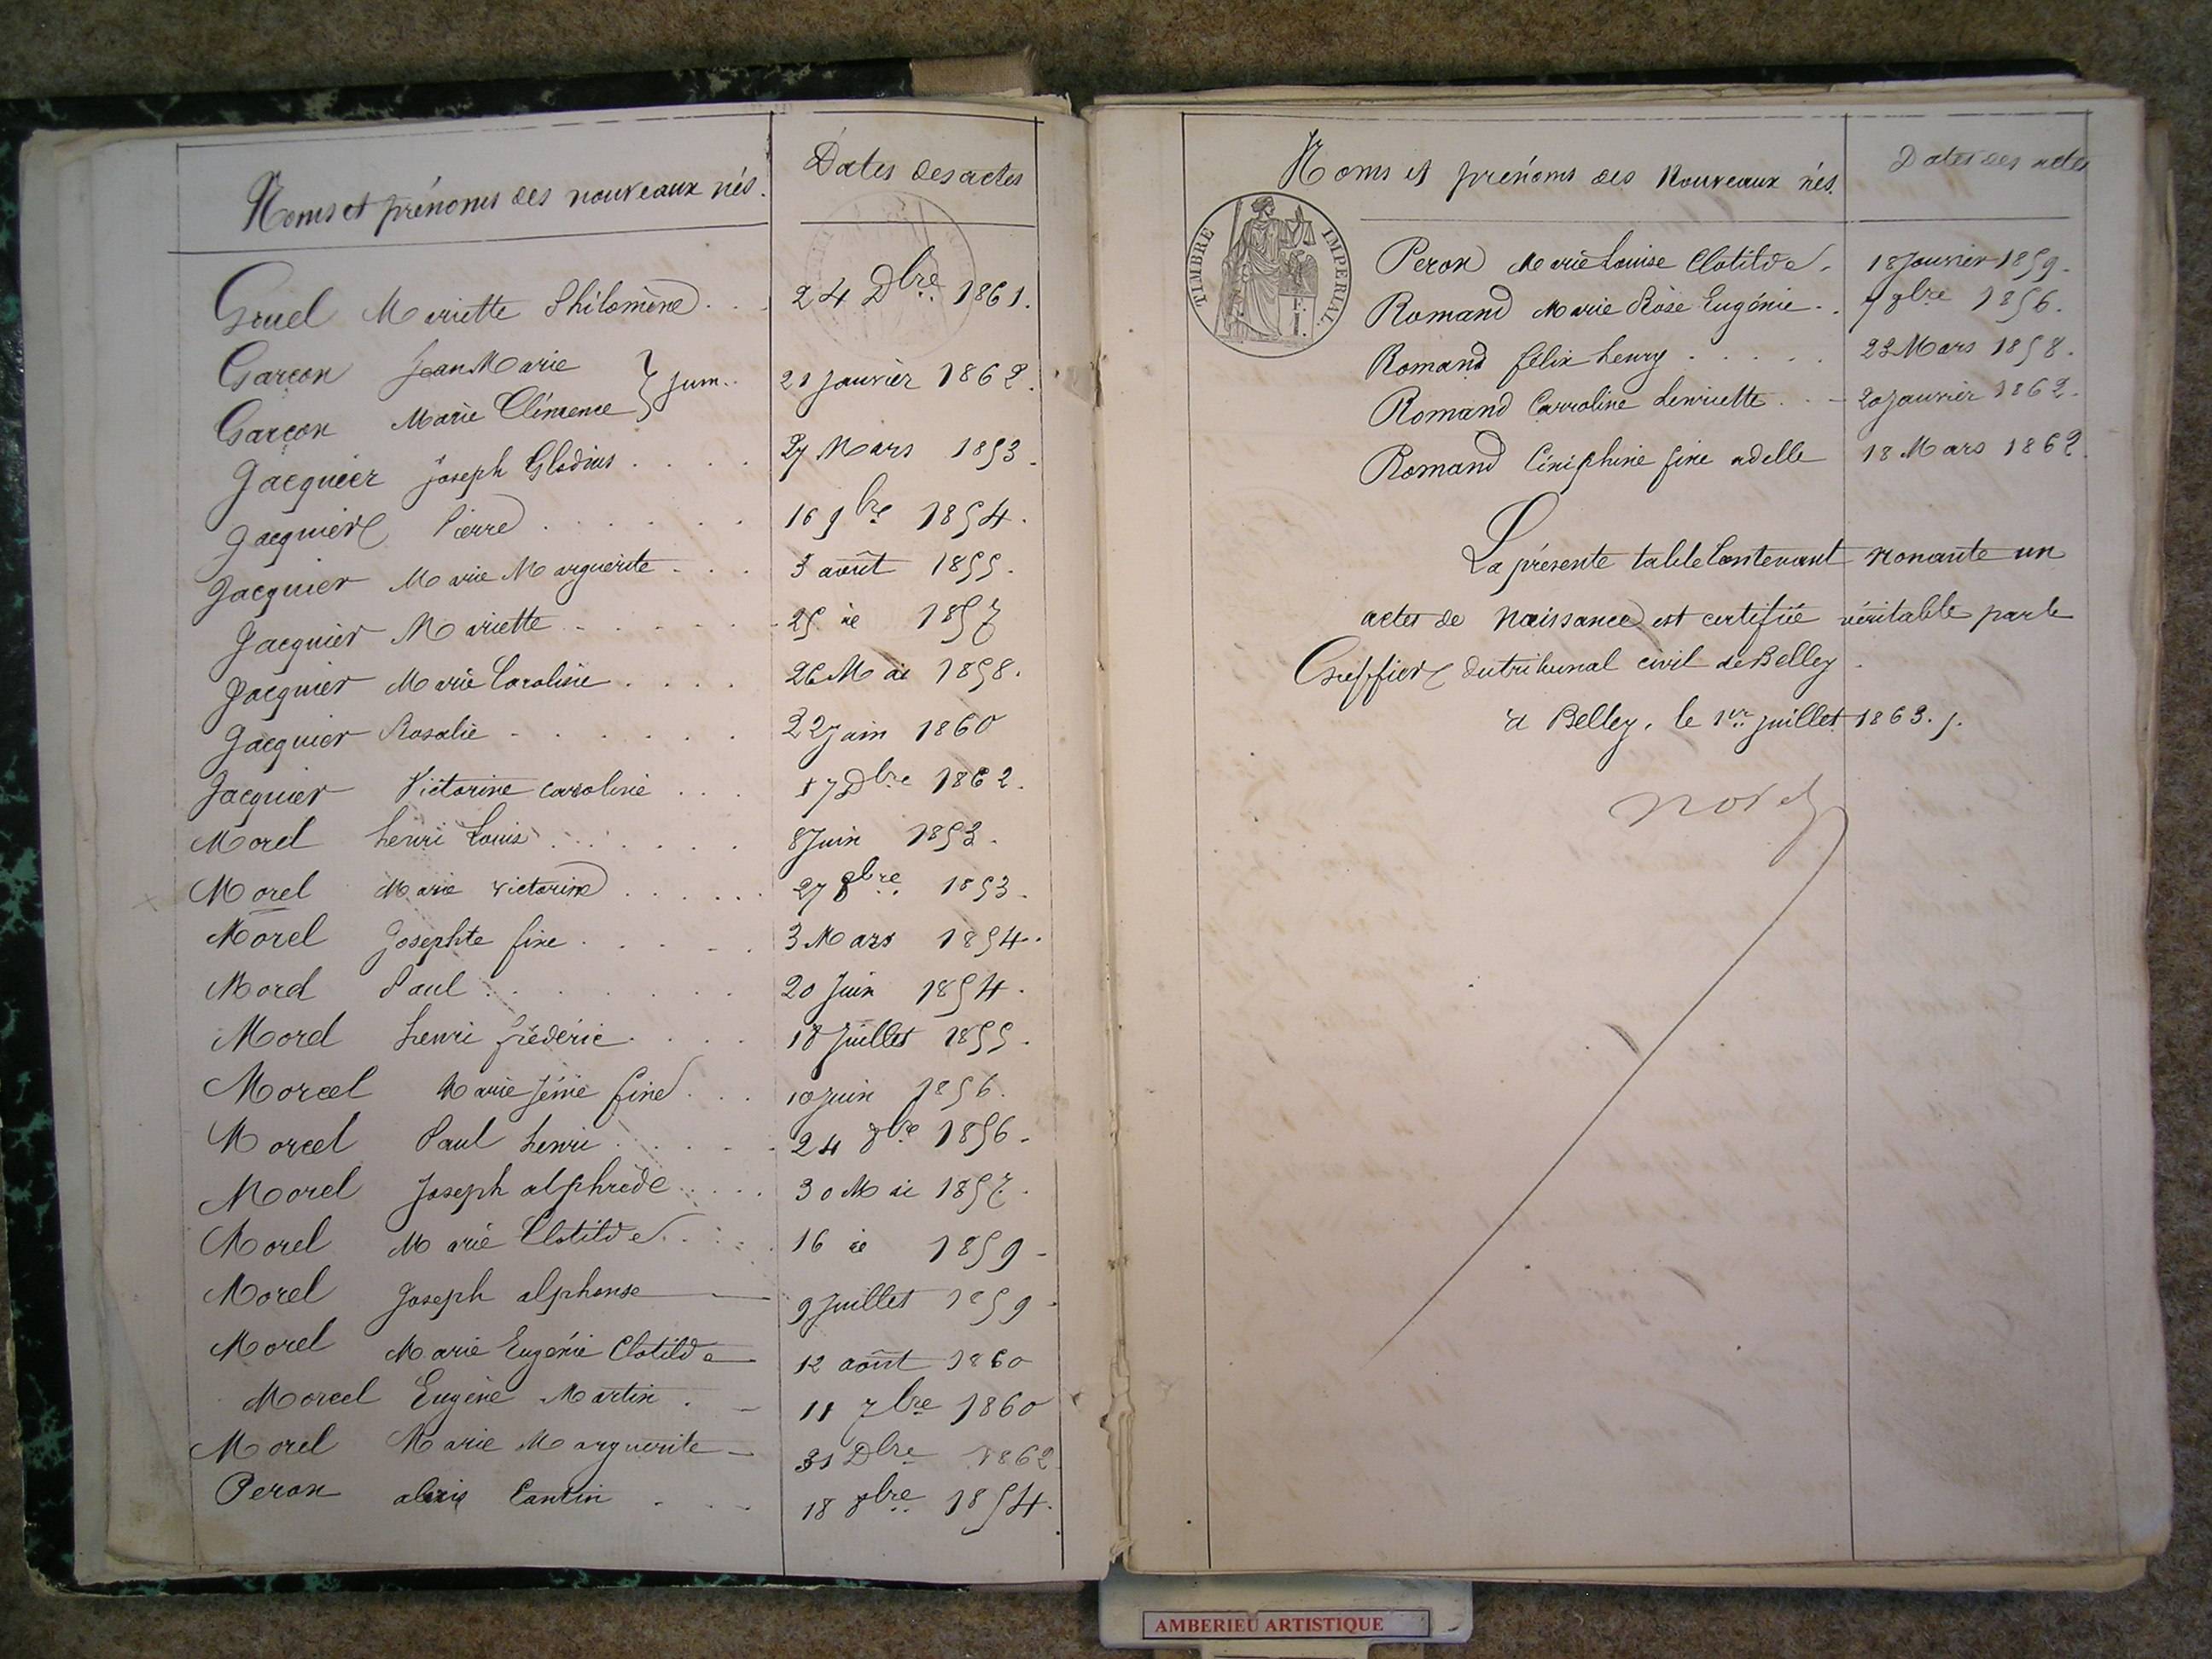 Noms et prénoms des nouveaux nés. Dates des actes
Gruel Mariette Philomène . . . 24 Dbre 1861.
Garçon Jean Marie
Garçon Marie Clémence } Jum.. 21 Janvier 1862.
Jacquier Joseph Glodius . . . . 27 Mars 1853.
Jacquier Pierre . . . . . . 16 9bre 1854.
Jacquier Marie Marguerite . . . 3 août 1855.
Jacquier Mariette . . . . . . 25 id 1857
Jacquier Marie Caroline . . . . 26 Mai 1858.
Jacquier Rosalie . . . . . . 22 Juin 1860
Jacquier Victorine Caroline . . . 17 Dbre 1862.
Morel henri Louis . . . . . . 8 Juin 1853.
Morel Marie victorine . . . . . 27 8bre 1853.
Morel Josephte fine . . . . . 3 Mars 1854.
Morel Paul . . . . . . . 20 Juin 1854.
Morel henri frédéric . . . . 18 Juillet 1855.
Morel Marie Jénie fine . . . 10 Juin 1856.
Morel Paul henri . . . . . 24 8bre 1856.
Morel Joseph alphrède . . . . 30 Mai 1857.
Morel Marie Clotilde . . . . 16 id 1859.
Morel Joseph alphonse 9 Juillet 1859.
Morel Marie Eugénie Clotilde 12 août 1860
Morel Eugène Martin . . 11 7bre 1860
Morel Marie Marguerite 31 Dbre 1862.
Peron alexis Cantin . . . 18 8bre 1854.
Noms et prénoms des Nouveaux nés. Dates des actes
TIMBRE IMPERIAL
Peron Marie Louise Clotilde. 18 Janvier 1859.
Romand Marie Rose Eugénie . . 9bre 1856.
Romand félix henry . . . . . 23 Mars 1858.
Romand Carroline henriette . . 20 Janvier 1862.
Romand fine adelle 18 Mars 1862
La présente table Contenant nonante un
actes de Naissance est certifiée véritable par le
Greffier du tribunal civil de Belley.
à Belley, le 1er juillet 1863. /.
AMBERIEU ARTISTIQUE